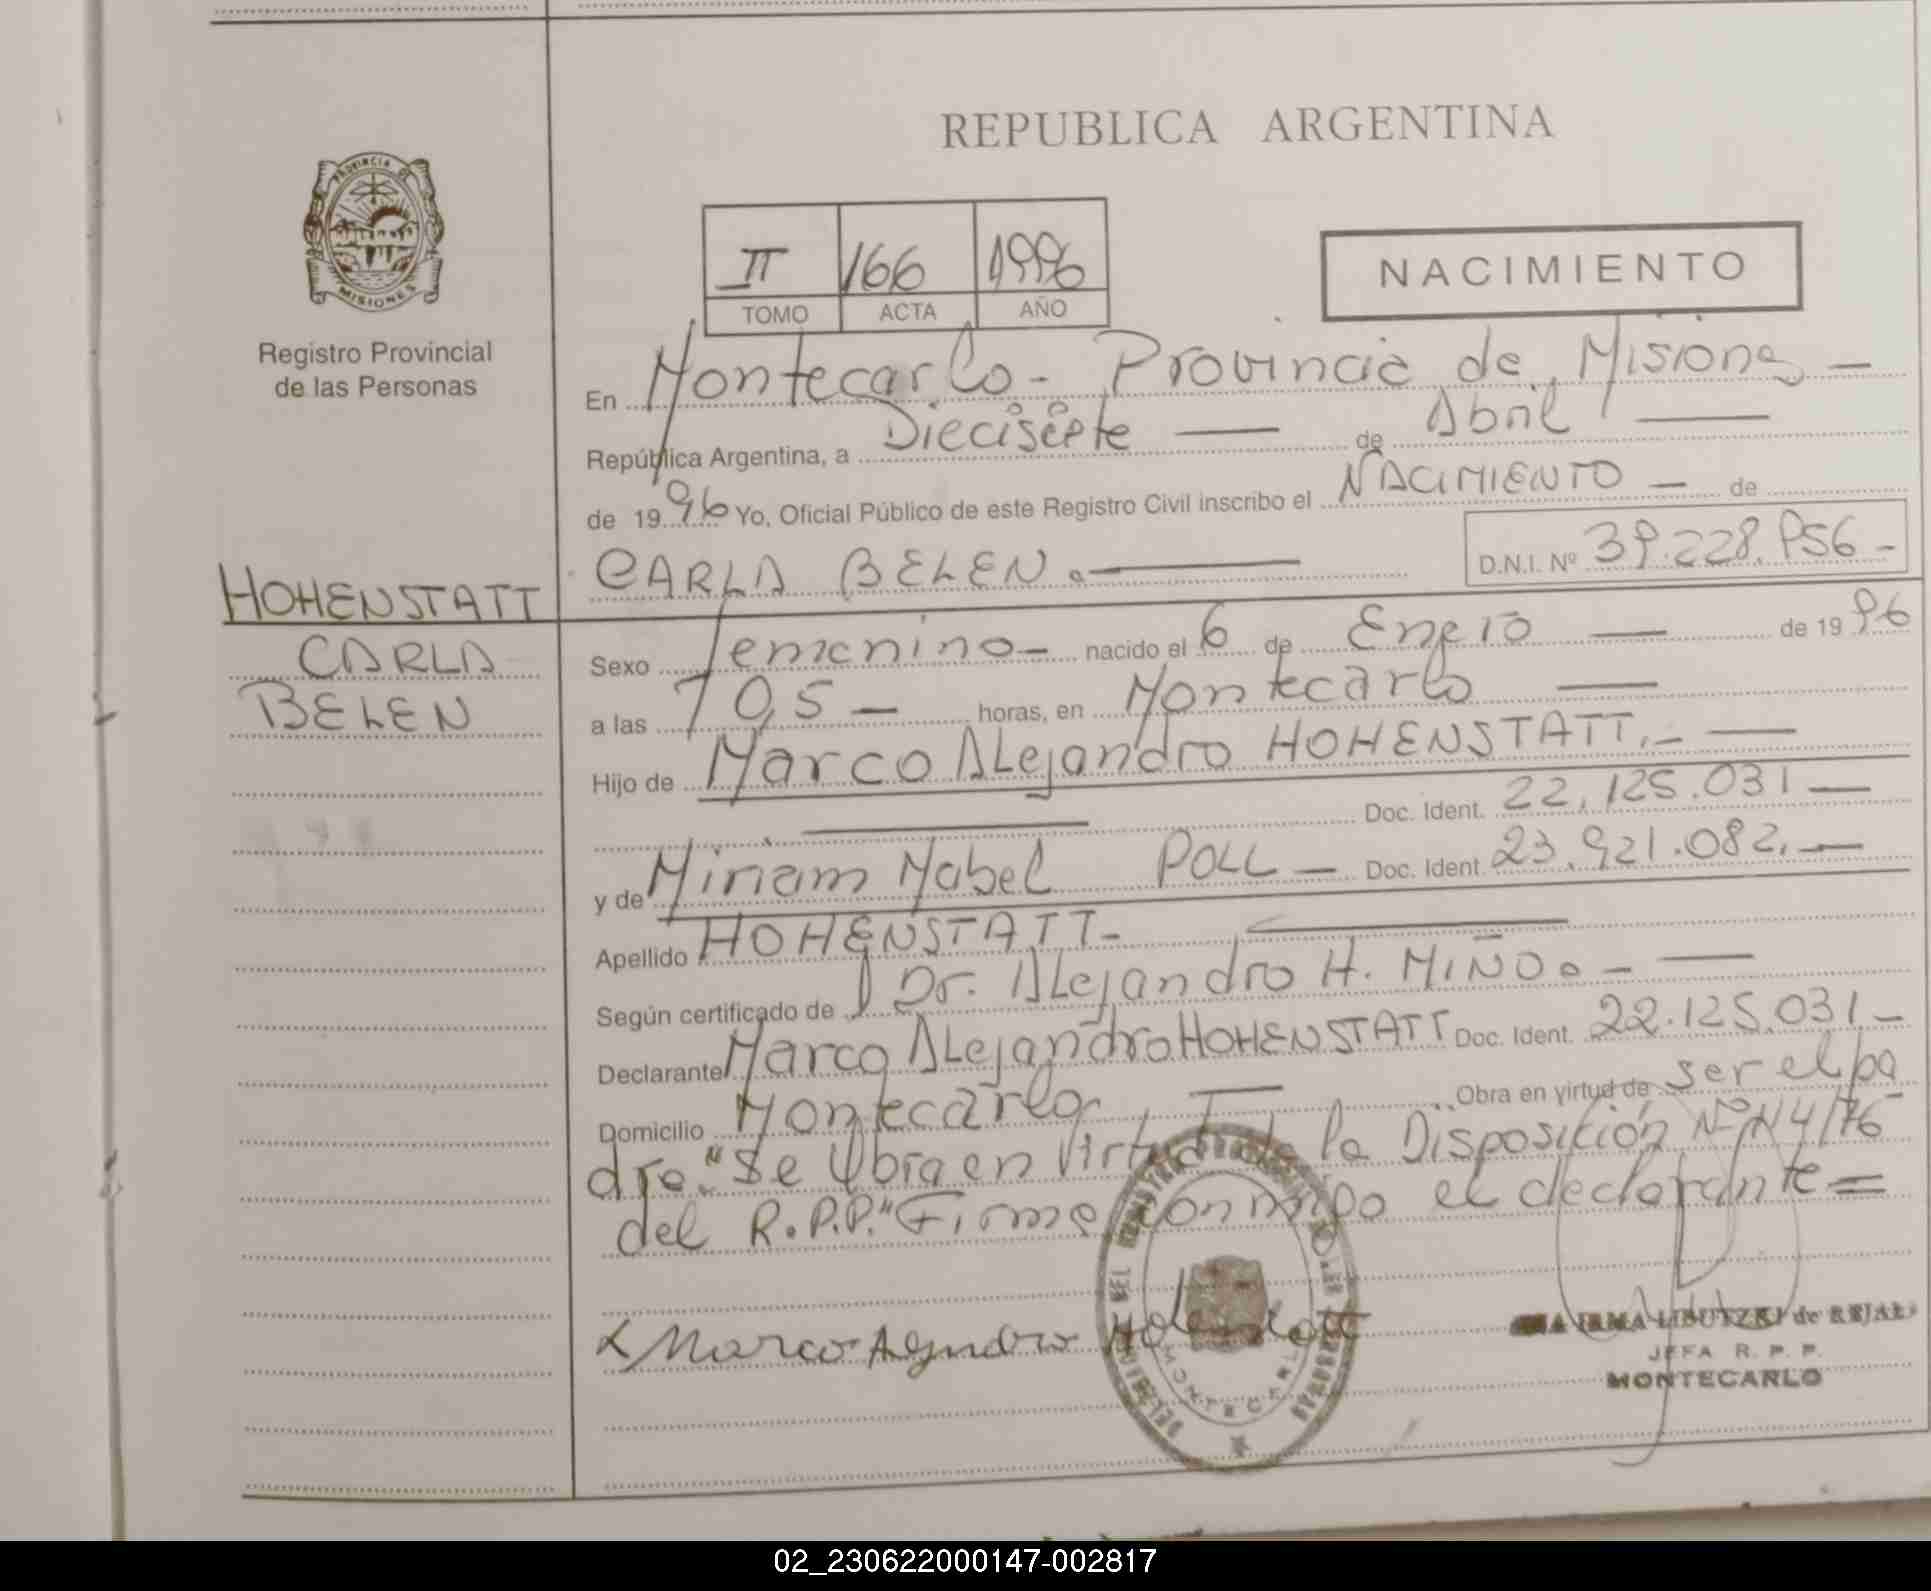 REPUBLICA ARGENTINA
PROVINCIA DE
MISIONES
Registro Provincial
de las Personas
II 166 1996
TOMO ACTA AÑO
NACIMIENTO
En Montecarlo - Provincia de Misiones —
República Argentina, a Diecisiete — de Abril —
de 1996 Yo, Oficial Público de este Registro Civil inscribo el NACIMIENTO — de
CARLA BELEN. — D.N.I. Nº 39.228.956 -
HOHENSTATT
CARLA
BELEN
Sexo Femenino — nacido el 6 de Enero — de 1996
a las 7 0,5 — horas, en Montecarlo —
Hijo de Marco Alejandro HOHENSTATT. - —
Doc. Ident. 22.125.031 —
y de Miriam Mabel POLL — Doc. Ident. 23.921.082. —
Apellido HOHENSTATT -
Según certificado de Dr. Alejandro H. MIÑO. - —
Declarante Marco Alejandro HOHENSTATT Doc. Ident. 22.125.031. -
Domicilio Montecarlo, — Obra en virtud de ser el pa
dre. "Se Obra en Virtud de la Disposición Nº 14/76
del R.P.P." Firma conmigo el declarante =
Marco Alejandro Hohenstatt
IRMA de
JEFA R. P. P.
MONTECARLO
MONTECARLO
02_230622000147-002817